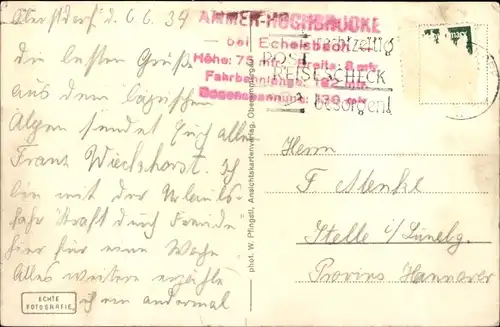 Oberstdorf d. 6.6.34
die besten Grüße
aus dem bayrischen
Alpen sendet Euch allen
Franz Wiechhorst. Ich
bin mit der Urlaubs-
fahr Kraft durch Freude
hier für eine Woche
Alles weitere erzähle
ich ein andermal
ECHTE
FOTOGRAFIE
AMMER-HOCHBRÜCKE
bei Echelsbach
Höhe: 75 mtr. Breite: 8 mtr.
Fahrbahnlänge: 182 mtr.
Bogenspannung: 130 mtr.
rechtzeitig
POST
REISESCHECK
besorgen!
phot. W. Pfingstl, Ansichtskartenverlag,
Herrn
F Menke
Stelle i/Lünebg.
Provinz Hannover